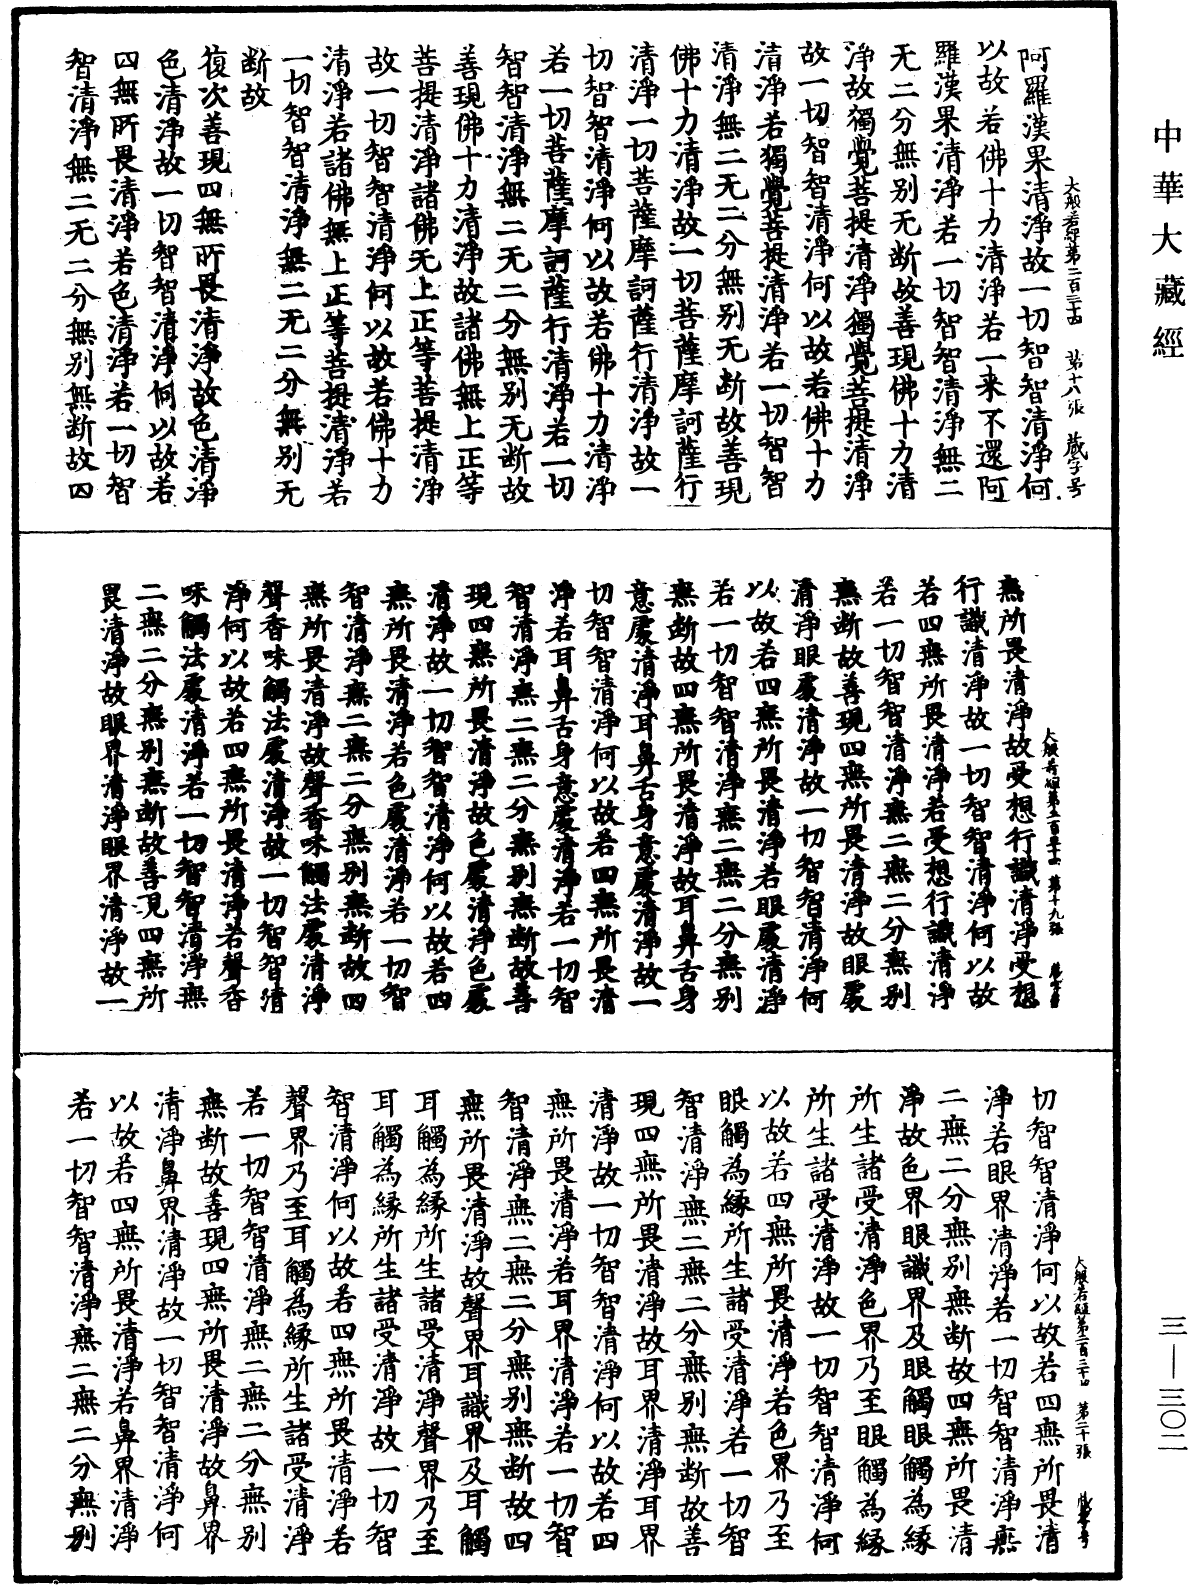 中華大藏經
大般若經第二百三十四 第十八張 藏字号
阿羅漢果清淨故一切智智清淨何
以故若佛十力清淨若一来不還阿
羅漢果清淨若一切智智清淨無二
无二分無别无断故善現佛十力清
淨故獨覺菩提清淨獨覺菩提清淨
故一切智智清淨何以故若佛十力
清淨若獨覺菩提清淨若一切智智
清淨無二无二分無别无断故善現
佛十力清淨故一切菩薩摩訶薩行
清淨一切菩薩摩訶薩行清淨故一
切智智清淨何以故若佛十力清淨
若一切菩薩摩訶薩行清淨若一切
智智清淨無二无二分無别无断故
善現佛十力清淨故諸佛無上正等
菩提清淨諸佛无上正等菩提清淨
故一切智智清淨何以故若佛十力
清淨若諸佛無上正等菩提清淨若
一切智智清淨無二无二分無别无
断故
復次善現四無所畏清淨故色清淨
色清淨故一切智智清淨何以故若
四無所畏清淨若色清淨若一切智
智清淨無二无二分無别無断故四
大般若經第二百三十四 第十九張 藏字号
無所畏清淨故受想行識清淨受想
行識清淨故一切智智清淨何以故
若四無所畏清淨若受想行識清淨
若一切智智清淨無二無二分無别
無断故善現四無所畏清淨故眼處
清淨眼處清淨故一切智智清淨何
以故若四無所畏清淨若眼處清淨
若一切智智清淨無二無二分無别
無断故四無所畏清淨故耳鼻舌身
意處清淨耳鼻舌身意處清淨故一
切智智清淨何以故若四無所畏清
淨若耳鼻舌身意處清淨若一切智
智清淨無二無二分無别無断故善
現四無所畏清淨故色處清淨色處
清淨故一切智智清淨何以故若四
無所畏清淨若色處清淨若一切智
智清淨無二無二分無别無断故四
無所畏清淨故聲香味觸法處清淨
聲香味觸法處清淨故一切智智清
淨何以故若四無所畏清淨若聲香
味觸法處清淨若一切智智清淨無
二無二分無别無断故善現四無所
畏清淨故眼界清淨眼界清淨故一
大般若經第二百三十四 第二十張 藏字号
切智智清淨何以故若四無所畏清
淨若眼界清淨若一切智智清淨無
二無二分無别無断故四無所畏清
淨故色界眼識界及眼觸眼觸為緣
所生諸受清淨色界乃至眼觸為緣
所生諸受清淨故一切智智清淨何
以故若四無所畏清淨若色界乃至
眼觸為緣所生諸受清淨若一切智
智清淨無二無二分無别無断故善
現四無所畏清淨故耳界清淨耳界
清淨故一切智智清淨何以故若四
無所畏清淨若耳界清淨若一切智
智清淨無二無二分無别無断故四
無所畏清淨故聲界耳識界及耳觸
耳觸為緣所生諸受清淨聲界乃至
耳觸為緣所生諸受清淨故一切智
智清淨何以故若四無所畏清淨若
聲界乃至耳觸為緣所生諸受清淨
若一切智智清淨無二無二分無别
無断故善現四無所畏清淨故鼻界
清淨鼻界清淨故一切智智清淨何
以故若四無所畏清淨若鼻界清淨
若一切智智清淨無二無二分無别
三—三〇二